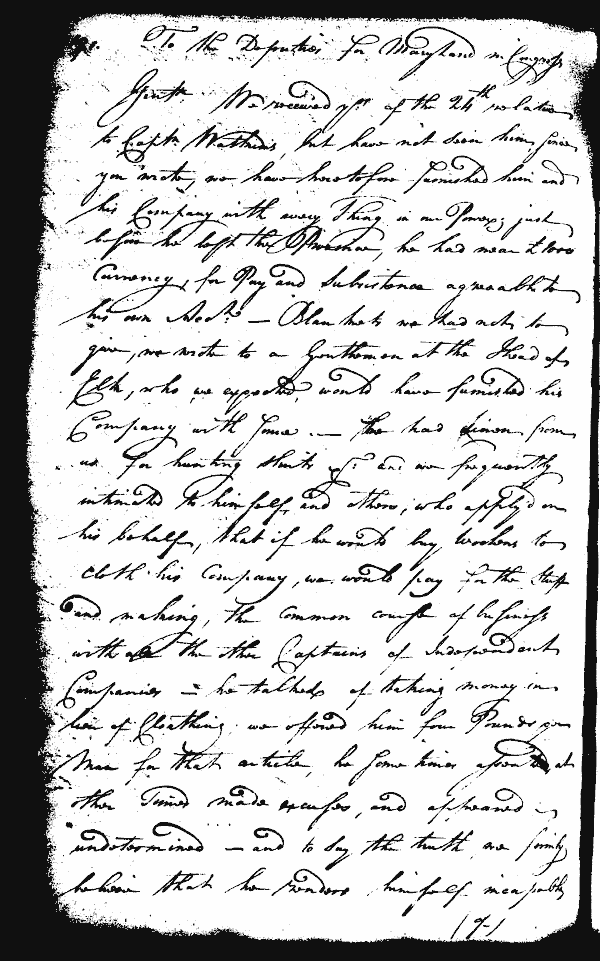 To the Deputies for Maryland in Congress
Gentn. We received yrs. of the 24th relative
to Captn. Watkins, but have not seen him, since
you wrote, we have heretofore furnished him and
his Company with every Thing in our Power; just
before he left the Province, he had near £ 1000
Currency, for Pay and Subsistence agreeable to
his own Acct. — Blankets we had not to
give, we wrote to a Gentleman at the Head of
Elk, who we expected, would have furnished his
Company with some. — He had Linen from
us for hunting Shirts &c. and we frequently
intimated to himself, and others, who apply'd on
his behalf, that if he would buy Woolens to
cloth his Company, we would pay for the Stuff
and making, the common course of business
with all the other Captains of Independent
Companies — he talked of taking money in
lieu of Cloathing, we offered him four Pounds per
Man for that article, he some times assented, at
other Times made excuses, and appeared
undetermined — and to say the truth we firmly
believe that he renders himself incapable